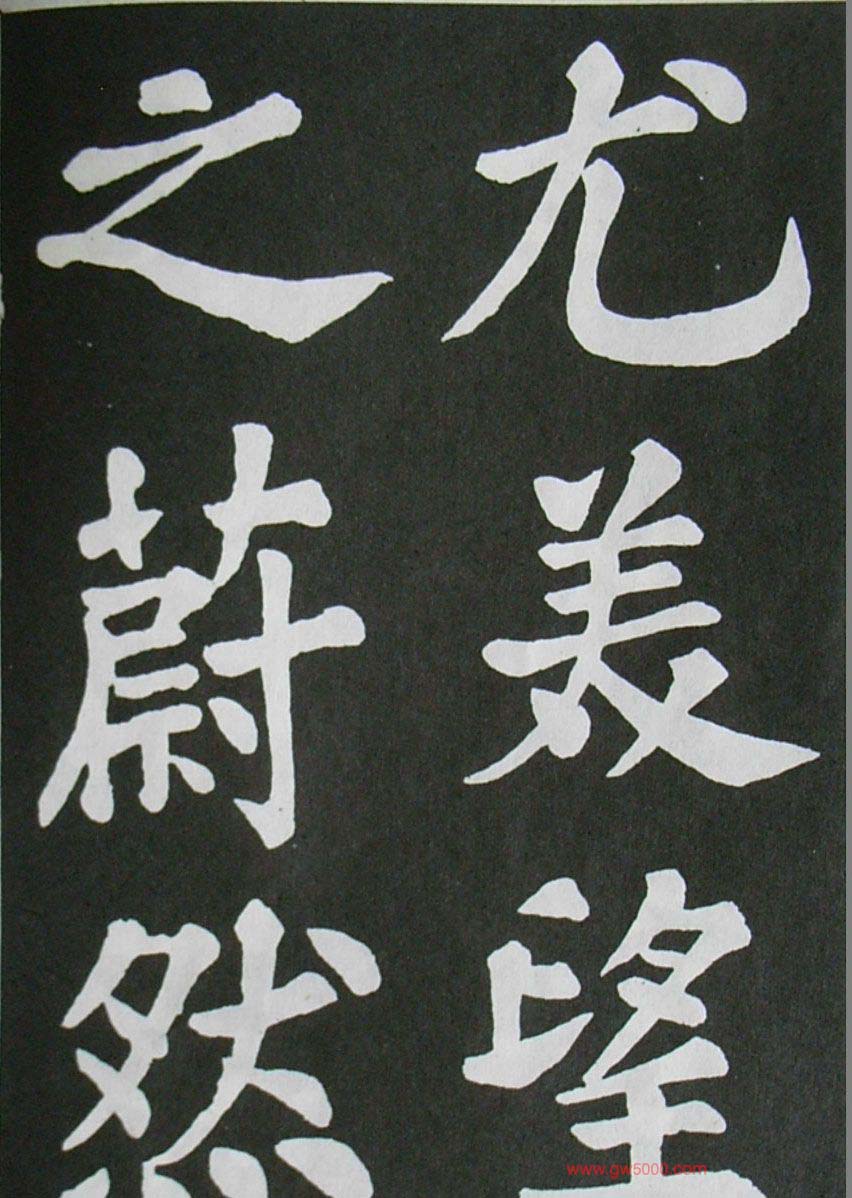 尤美望
之蔚然
www.gw5000.com